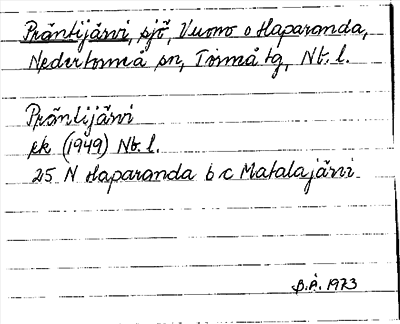 Präntijärvi, sjö, Vuono o Haparanda,
Nedertorneå sn, Torneå tg, Nb. l.
Präntijärvi
ek (1949) Nb l.
25 N Haparanda b c Matalajärvi
B.Å. 1973